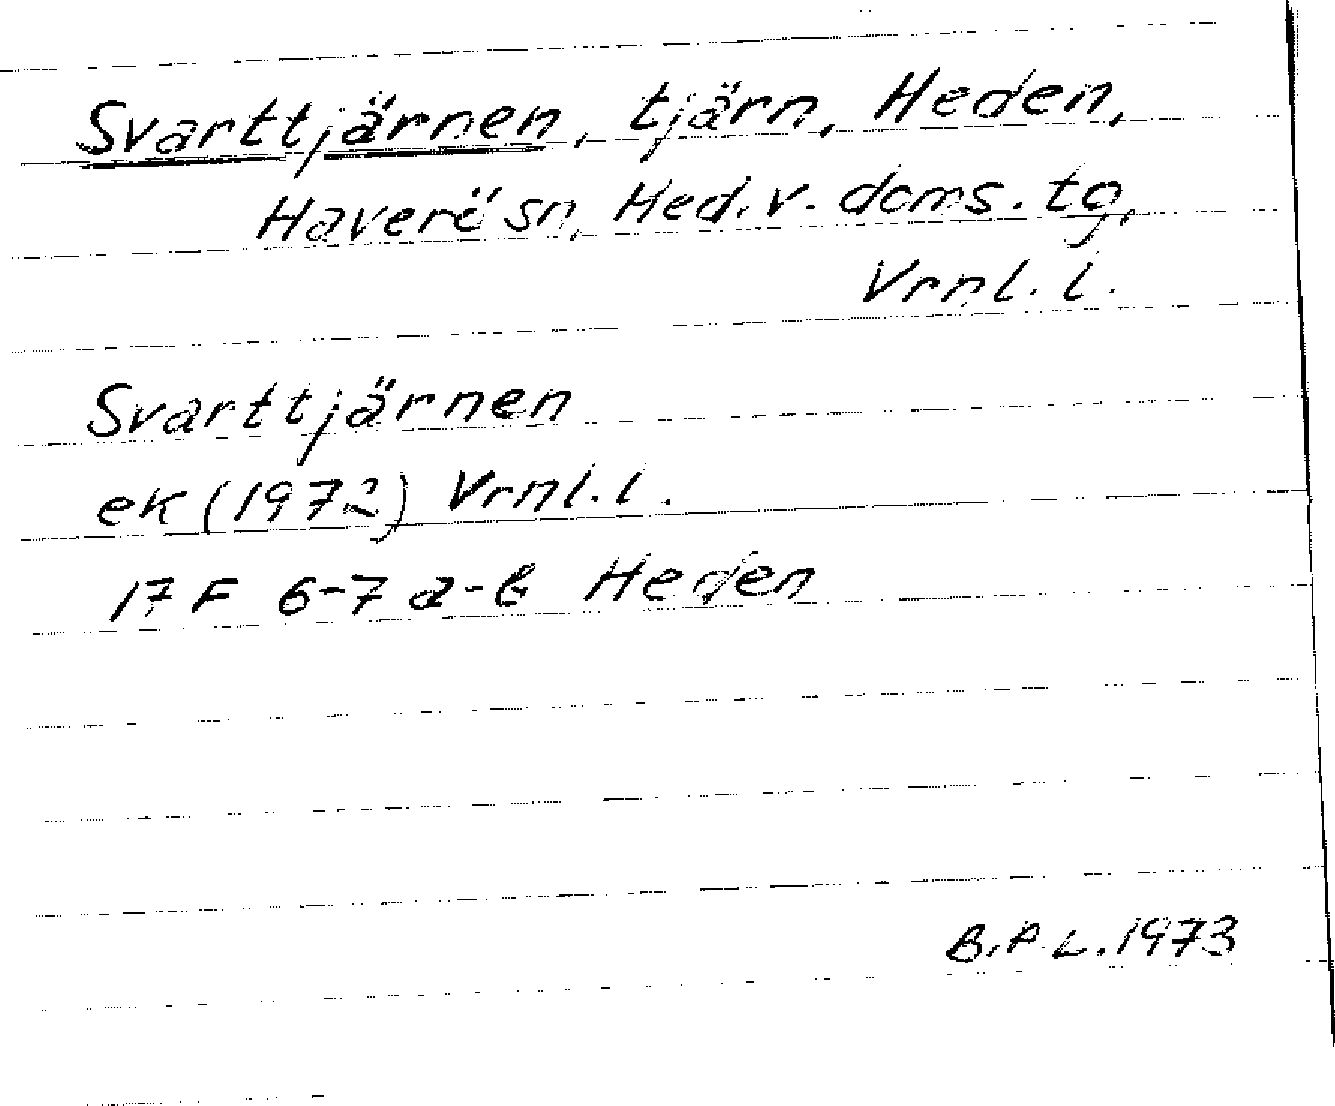 Svarttjärnen, tjärn, Heden,
Haverö sn, Hed. v. doms. tg,
Vrnl. l.
Svarttjärnen
ek (1972) Vrnl. l.
17 F 6-7 a-b Heden
B.P.L. 1973